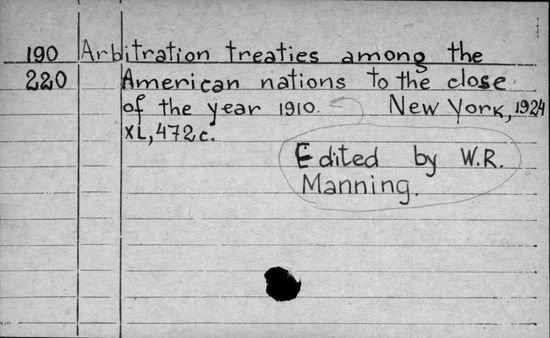 190 Arbitration treaties among the
220 American nations to the close
of the year 1910. New York, 1924
XL, 472 c.
Edited by W.R.
Manning.